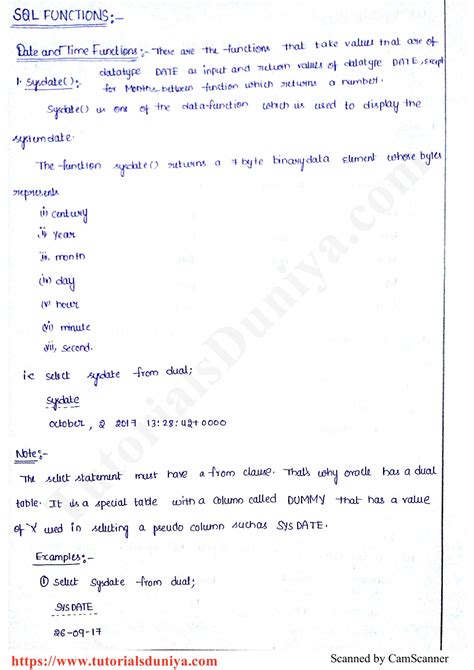 SQL FUNCTIONS:-
Date and Time Functions:- These are the functions that take values that are of
datatype DATE as input and return values of datatype DATE, except
for Months_between function which returns a number.
1. Sysdate():
Sysdate() is one of the data-function which is used to display the
system date.
The function sysdate() returns a 7 byte binary data element whose bytes
represents
(i) century
(ii) Year
(iii) month
(iv) day
(v) hour
(vi) minute
(vii) second.
i.e select sysdate from dual;
Sysdate
October, 2 2017 13:28:42+0000
Note:-
The select statement must have a from clause. That's why oracle has a dual
table. It is a special table with a column called DUMMY that has a value
of 'X' used in selecting a pseudo column such as SYSDATE.
Examples:-
① Select Sysdate from dual;
SYSDATE
26-09-17
TutorialsDuniya.com
https://www.tutorialsduniya.com
Scanned by CamScanner